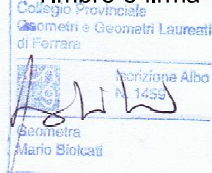 Timbro e firma
Collegio Provinciale
Geometri e Geometri Laureati
di Ferrara
Iscrizione Albo
N. 1459
Geometra
Mario Biolcati